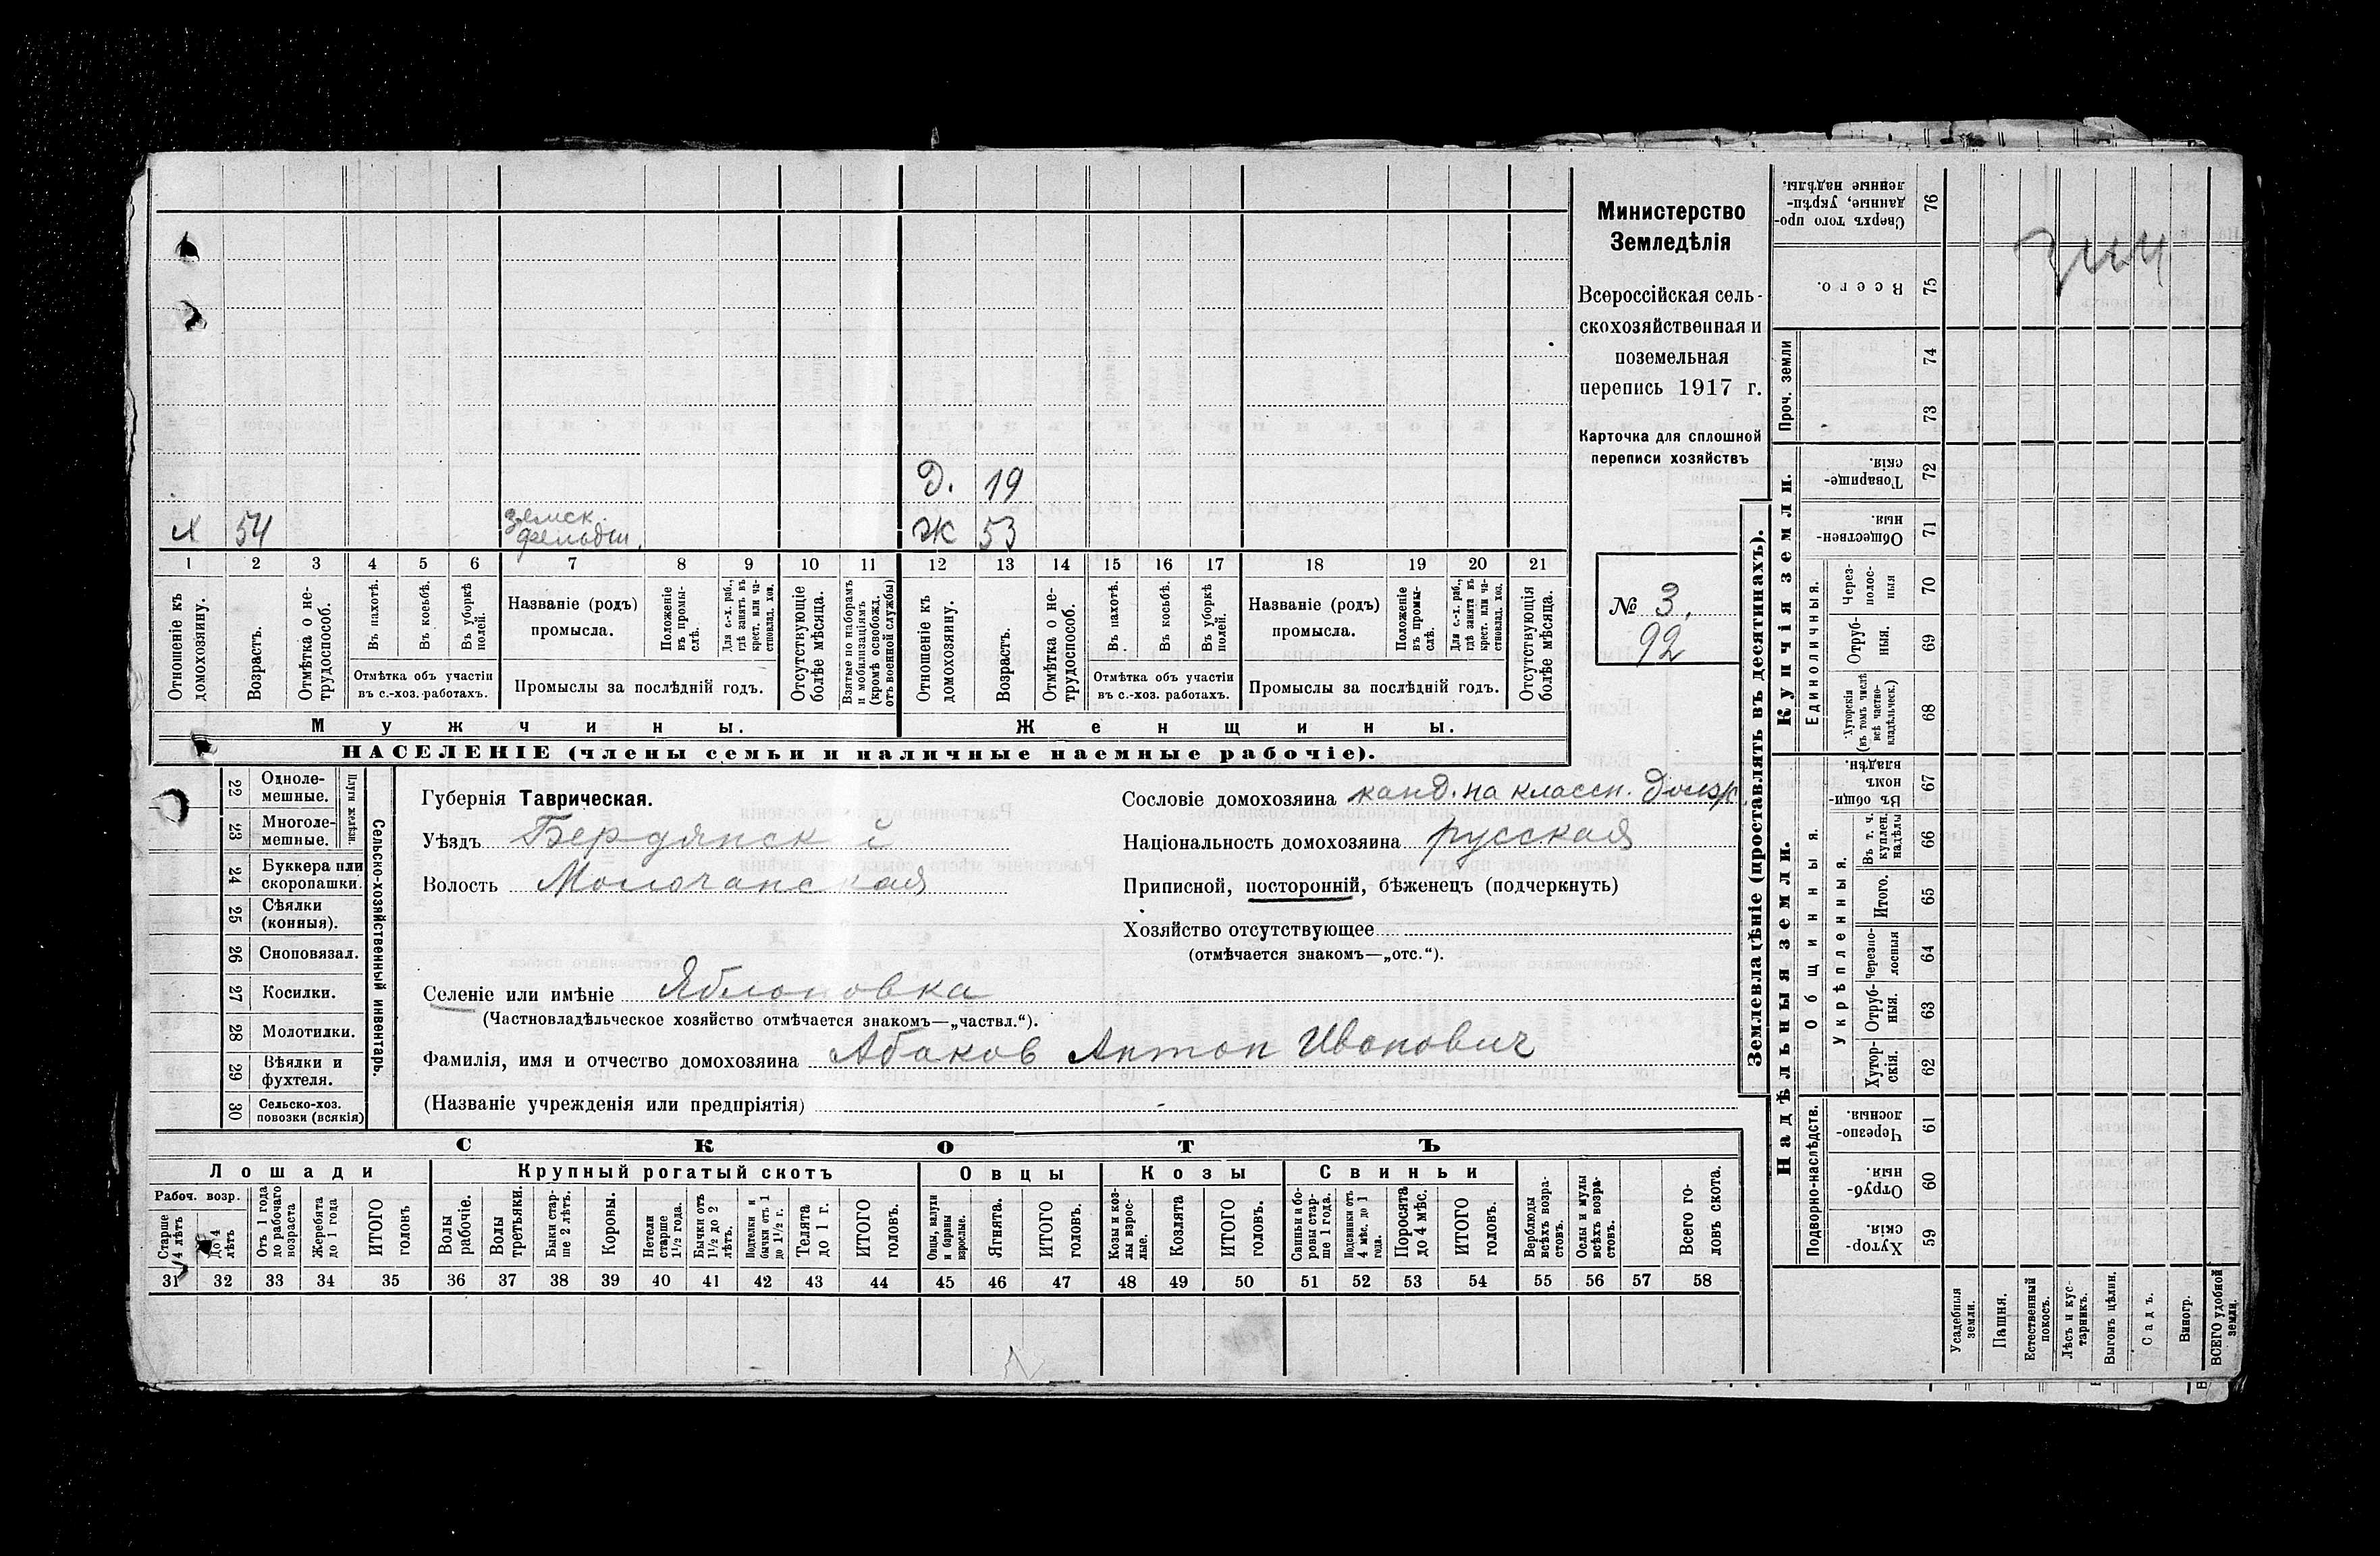 Министерство
Земледѣлія
Всероссійская сель-
скохозяйственная и
поземельная
перепись 1917 г.
Карточка для сплошной
переписи хозяйствъ
№ 3.
92
Д. 19
х 54 земск. фельдш. Ж 53
1 2 3 4 5 6 7 8 9 10 11 12 13 14 15 16 17 18 19 20 21
Отношеніе къ домохозяину.
Возрастъ.
Отмѣтка о не-трудоспособ.
Въ пахотѣ.
Въ косьбѣ.
Въ уборкѣ полей.
Отмѣтка объ участіи
въ с.-хоз. работахъ.
Названіе (родъ)
промысла.
Положеніе въ промы-слѣ.
Для с.-х. раб., гдѣ занятъ въ крест. или ча-стновлад. хоз.
Промыслы за послѣдній годъ.
Отсутствующіе болѣе мѣсяца.
Взятые по наборамъ и мобилизаціямъ (кромѣ освобожд. отъ военной службы)
Отношеніе къ домохозяину.
Возрастъ.
Отмѣтка о не-трудоспособ.
Въ пахотѣ.
Въ косьбѣ.
Въ уборкѣ полей.
Отмѣтка объ участіи
въ с.-хоз. работахъ.
Названіе (родъ)
промысла.
Положеніе въ промы-слѣ.
Для с.-х. раб., гдѣ занята въ крест. или ча-стновлад. хоз.
Промыслы за послѣдній годъ.
Отсутствующія болѣе мѣсяца.
Мужчины. Женщины.
НАСЕЛЕНІЕ (члены семьи и наличные наемные рабочіе).
22 Одноле-мешные.
23 Многоле-мешные.
Плуги желѣзн.
24 Буккера или скоропашки.
25 Сѣялки (конныя).
26 Сноповязал.
27 Косилки.
28 Молотилки.
29 Вѣялки и фухтеля.
30 Сельско-хоз. повозки (всякія)
Сельско-хозяйственный инвентарь.
Губернія Таврическая.
Уѣздъ Бердянскій
Волость Молочанская
Сословіе домохозяина канд. на классн. должн.
Національность домохозяина русская
Приписной, посторонній, бѣженецъ (подчеркнуть)
Хозяйство отсутствующее
(отмѣчается знакомъ—„отс.“).
Селеніе или имѣніе Яблоновка
(Частновладѣльческое хозяйство отмѣчается знакомъ—„частвл.“).
Фамилія, имя и отчество домохозяина Абаков Антон Иванович
(Названіе учрежденія или предпріятія) -
СКОТЪ
Лошади Крупный рогатый скотъ Овцы Козы Свиньи
Рабоч. возр.
Старше 4 лѣтъ
До 4 лѣтъ
Отъ 1 года до рабочаго возраста
Жеребята до 1 года
ИТОГО головъ
Волы рабочіе.
Волы третьяки.
Быки стар-ше 2 лѣтъ.
Коровы.
Нетели старше 1½ года.
Бычки отъ 1½ до 2 лѣтъ.
Подтелки и бычки отъ 1 до 1½ г.
Телята до 1 г.
ИТОГО головъ.
Овцы, валухи и бараны взрослые.
Ягнята.
ИТОГО головъ.
Козы и коз-лы взрос-лые.
Козлята
ИТОГО головъ.
Свиньи и бо-ровы стар-ше 1 года.
Подсвинки отъ 4 мѣс. до 1 года.
Поросята до 4 мѣс.
ИТОГО головъ.
Верблюды всѣхъ возра-стовъ.
Ослы и мулы всѣхъ возра-стовъ.
Всего го-ловъ скота.
31 32 33 34 35 36 37 38 39 40 41 42 43 44 45 46 47 48 49 50 51 52 53 54 55 56 57 58
Землевладѣніе (проставлять въ десятинахъ).
Купчія земли.
Надѣльныя земли.
Сверхъ того про-данные, укрѣп-ленные надѣлы. 76
Всего. 75
Проч. земли
74
73
Товарище-скія. 72
Обществен-ныя. 71
Единоличныя.
Через-полос-ныя 70
Отруб-ныя. 69
Хуторскія (въ томъ числѣ всѣ частно-владѣльческ.) 68
Общинныя.
Въ общи-номъ владѣн. 67
Укрѣпленныя.
Въ т. ч. куплен. надѣлы 66
Итого. 65
Черезпо-лосныя 64
Отруб-ныя. 63
Хутор-скія. 62
Подворно-наслѣдств.
Черезпо-лосныя. 61
Отруб-ныя. 60
Хутор-скія. 59
Усадебныя земли.
Пашня.
Естественный покосъ.
Лѣсъ и кус-тарникъ.
Выгонъ цѣлин.
Садъ.
Виногр.
ВСЕГО удобной земли.